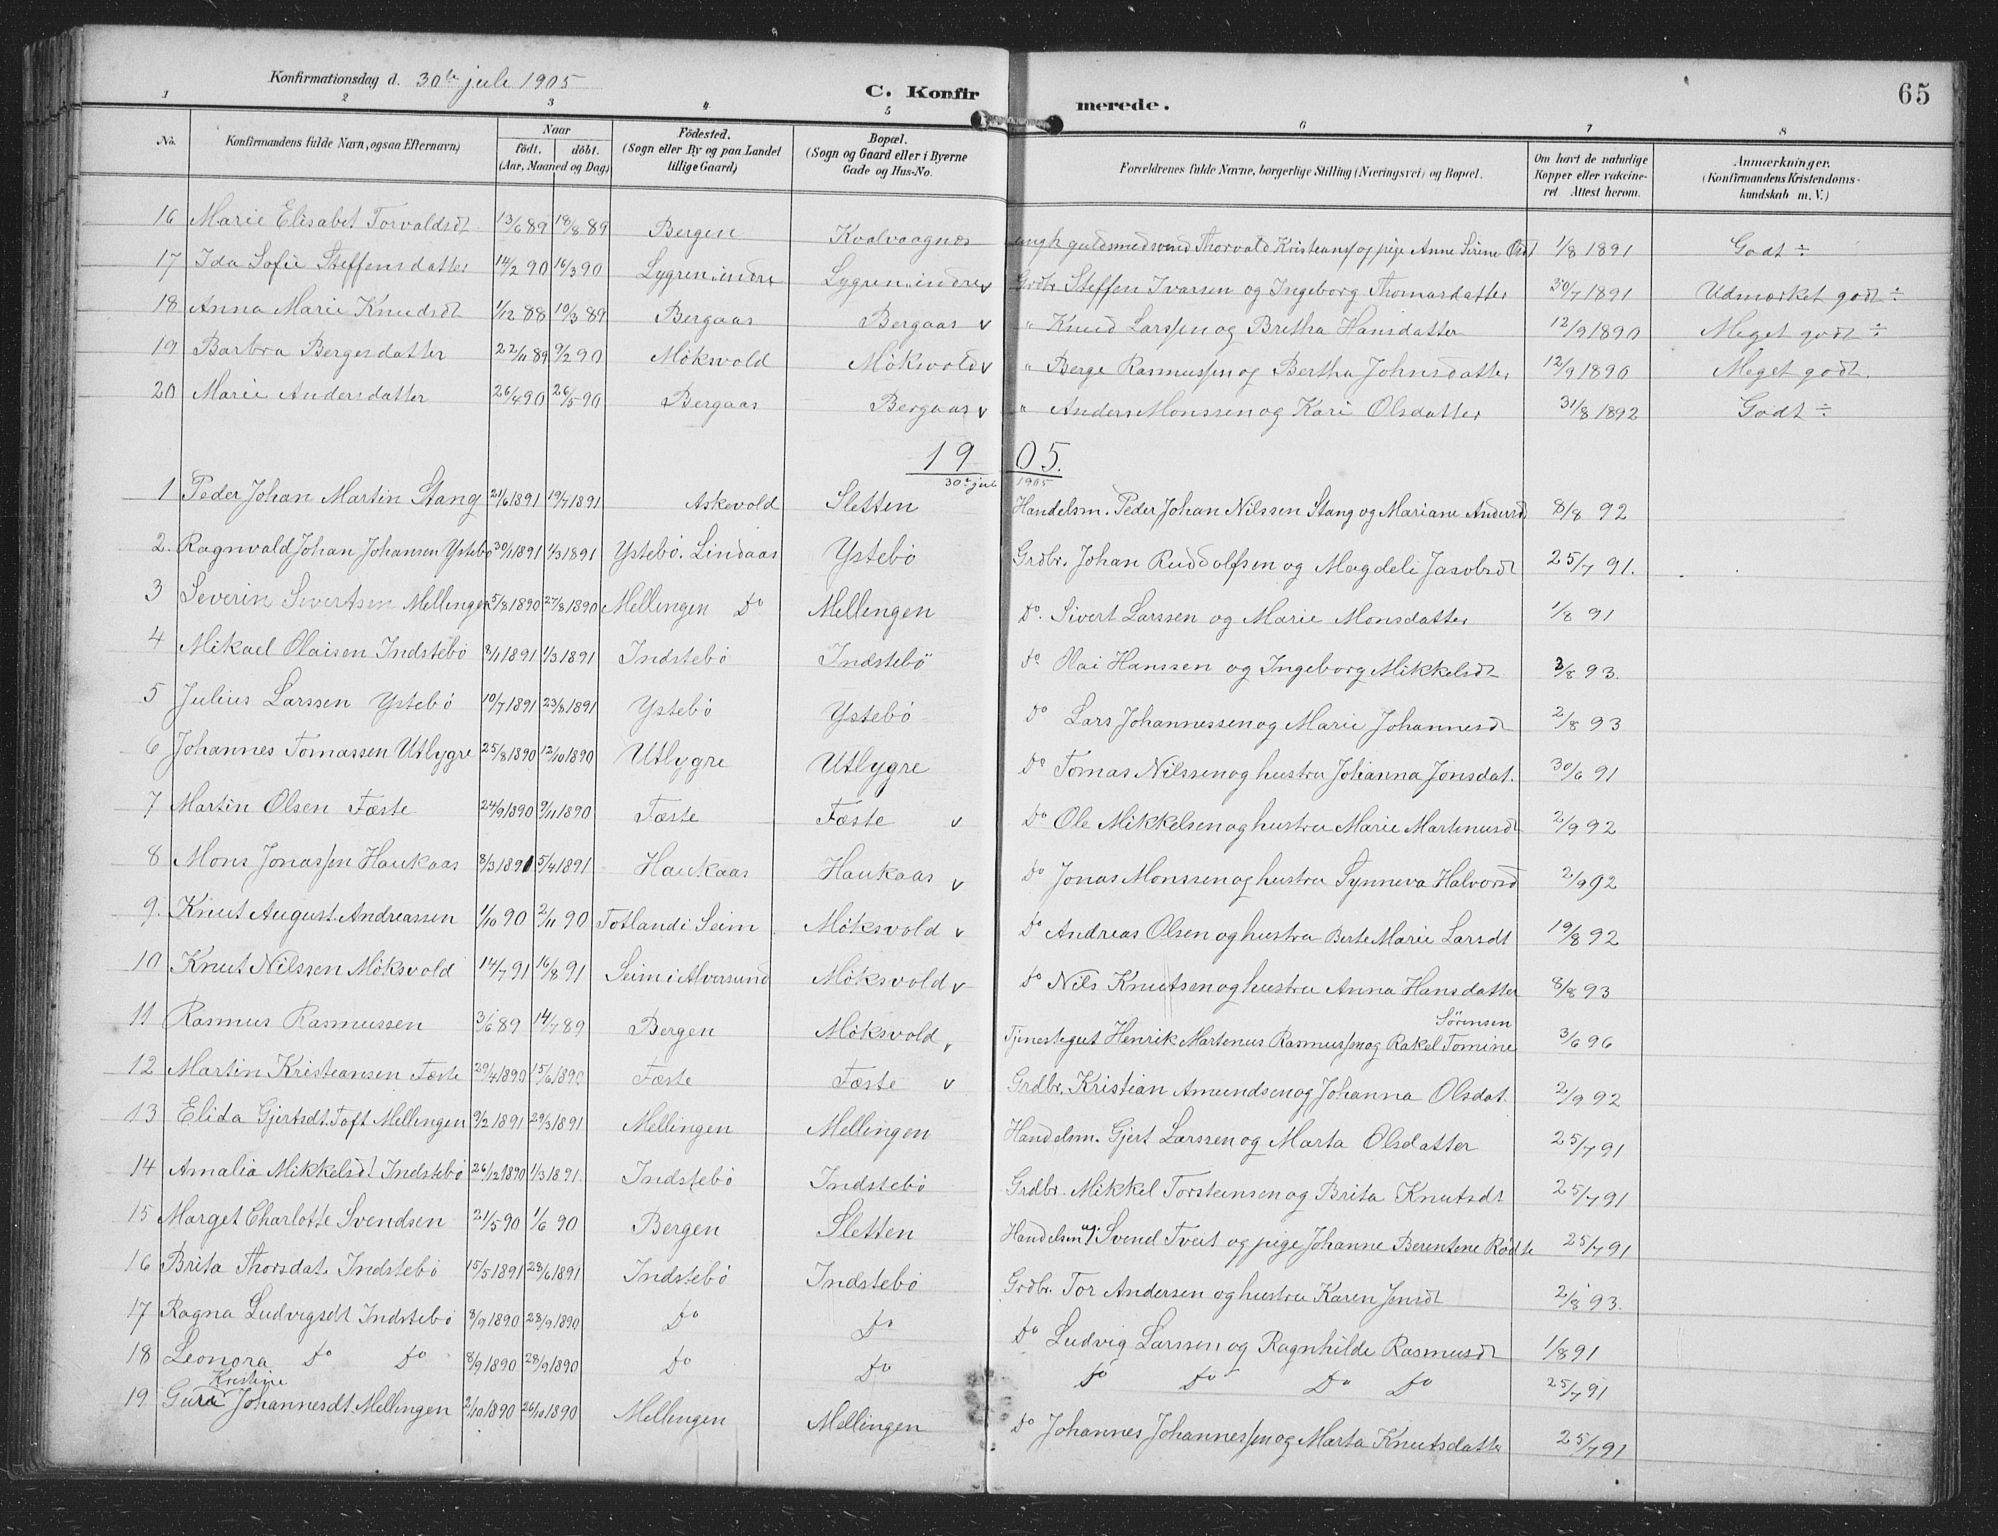 Konfirmationsdag d. 30te juli 1905
C. Konfirmerede.
65
1 2 3 4 5 6 7 8
No. Konfirmandens fulde Navn, ogsaa Efternavn) Naar födt. döbt. (Aar, Maaned og Dag) Födested. (Sogn eller By og paa Landet tillige Gaard) Bopæl. (Sogn og Gaard eller i Byerne Gade og Hus-No. Forældrenes fulde Navne, borgerlige Stilling (Næringsvei) og Bopæl. Om havt de naturlige Kopper eller vakcineret Attest herom. Anmærkninger. (Konfirmandens Kristendomskundskab m. V.)
16 Marie Elisabet Torvaldsdt 13/6 89 18/8 89 Bergen Kvalvaagnes ungk guldsmedsvend Thorvald Kristians og pige Anne Serine Olsdt 1/8 1891 Godt ÷
17 Ida Sofie Steffensdatter 14/2 90 16/3 90 Lygren indre Lygren indre v Grdbr. Steffen Ivarsen og Ingeborg Thomasdatter 30/7 1891 Udmærket godt ÷
18 Anna Marie Knudsdt 1/12 88 10/3 89 Bergaas Bergaas v " Knud Larssen og Britha Hansdatter 12/9 1890 Meget godt ÷
19 Barbra Bergesdatter 22/11 89 9/2 90 Möksvold Möksvold v " Berge Rasmussen og Bertha Johnsdatter 12/9 1890 Meget godt.
20 Marie Andersdatter 26/4 90 26/5 90 Bergaas Bergaas v " Anders Monssen og Kari Olsdatter 31/8 1892 Godt ÷
1905.
30te juli 1905
1 Peder Johan Martin Stang 21/6 1891 19/7 1891 Askevold Sletten Handelsm. Peder Johan Nilssen Stang og Mariane Andersd 8/8 92
2. Ragnvald Johan Johansen Ystebö 30/1 1891 1/3 1891 Ystebö. Lindaas Ystebö Grdbr. Johan Ruddolfsen og Magdeli Jacobsdt 25/7 91.
3 Severin Sivertsen Mellingen 5/8 1890 27/8 1890 Mellingen Do Mellingen Do. Sivert Larssen og Marie Monsdatter 1/8 91
4 Mikael Olaisen Indstebö 3/1 1891 1/3 1891 Indstebö Indstebö do Olai Hanssen og Ingeborg Mikkelsdt 3/8 93.
5 Julius Larssen Ystebö 10/7 1891 23/8 1891 Ystebö Ystebö Do Lars Johannessen og Marie Johannesdt 2/8 93
6 Johannes Tomassen Utlygre 25/8 1890 12/10 1890 Utlygre Utlygre Do Tomas Nilssen og hustru Johanna Jonsdat. 30/6 91
7 Martin Olsen Fæste 24/9 1890 9/11 1890 Fæste Fæste v Do Ole Mikkelsen og hustru Marie Martinusdt 2/9 92
8 Mons Jonassen Haukaas 8/3 1891 5/4 1891 Haukaas Haukaas v Do Jonas Monssen og hustru Synneva Halvorsd 2/9 92
9. Knut August Andreassen 1/10 90 2/11 90 Totland i Seim Möksvold v Do Andreas Olsen og hustru Berte Marie Larsdt 19/8 92
10 Knut Nilssen Möksvold 14/7 91 16/8 91 Seim i Alversund Möksvold v do Nils Knutsen og hustru Anna Hansdatter 8/8 93
11 Rasmus Rasmussen 3/6 89 14/7 89 Bergen Möksvold v Tjenestegut Henrik Martenus Rasmussen og Rakel Tomine Sörensen 3/6 96
12 Martin Kristiansen Fæste 29/4 1890 15/6 1890 Fæste Fæste v Grdbr. Kristian Amundsen og Johanna Olsdat. 2/9 92
13 Elida Gjertsdt. Toft Mellingen 9/2 1891 29/3 1891 Mellingen Mellingen Handelsm. Gjert Larssen og Marta Olsdatter 25/7 91
14 Amalia Mikkelsdt Indstebö 26/12 1890 1/3 1891. Indstebö Indstebö Grdbr. Mikkel Torsteinsen og Brita Knutsdt 25/7 91
15 Marget Charlotte Svendsen 21/5 90 1/6 90 Bergen Sletten Handelsm Svend Tveit og pige Johanne Berentene Rödte 25/7 91
16 Brita Thorsdat. Indstebö 15/5 1891 28/6 1891 Indstebö Indstebö Grdbr. Tor Andersen og hustru Karen Jensdt 2/8 93.
17 Ragna Ludvigsdt Indstebö 8/9 1890 28/9 1890 Do Do Do Ludvig Larssen og Ragnhilde Rasmusdt 1/8 91
18 Leonora Do Do 8/9 1890 28/9 1890 Do Do Do Do Do Do 25/7 91
Kristine
19 Guri Johannesdt. Mellingen 2/10 1890 26/10 1890 Mellingen Mellingen Do Johannes Johannessen og Marta Knutsdatter 25/7 91